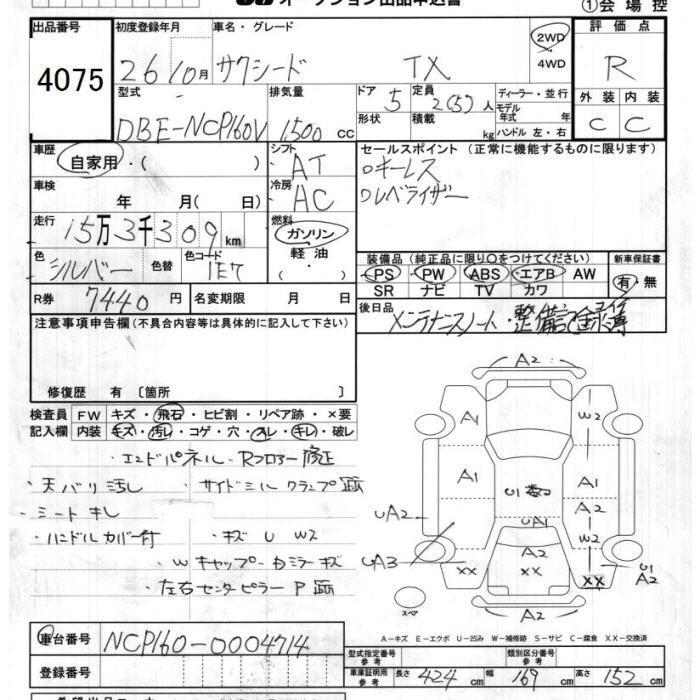 オークション出品申込書 ①会場控
出品番号 4075
初度登録年月 26 10月
車名・グレード サクシード TX
2WD 4WD
評価点 R
型式 DBE-NCP160V
排気量 1,500 cc
ドア 5 形状
定員 2(5)人 積載 kg
ディーラー・並行 モデル年式 年式 ハンドル 左・右
外装 C 内装 C
車歴 自家用・( )
シフト AT
セールスポイント (正常に機能するものに限ります)
キーレス
レベライザー
車検 年 月( 日)
冷房 AC
走行 15万3千309km
燃料 ガソリン・軽油・
色 シルバー 色替 色コード 1E7
装備品 (純正品に限り〇をつけてください) 新車保証書
PS PW ABS エアB AW 有・無
SR ナビ TV カワ
R券 7440円 名変期限 月 日
後日品 メンテナンスノート 整備記録簿
注意事項申告欄(不具合内容等は具体的に記入して下さい)
修復歴 有 〔箇所 〕
検査員記入欄 FW キズ・飛石・ヒビ割・リペア跡・×要
内装 キズ・汚レ・コゲ・穴・スレ・キレ・破レ
・エンドパネル・Rフロアー修正
・天バリ汚し ・サイドシルクランプ跡
・シートキレ
・ハンドルカバー付 ・キズ U W2
・Wキャップ・Dミラーキズ
・左右センターピラーP跡
A2
A1 W2
A1 A1
U1 数コ
UA2 UA1 A2
A2 W2
UA3 XX XX A2 XX U1 A2
A2
スペア
A−キズ E−エクボ U−凹み W−補修跡 S−サビ C−腐食 XX−交換済
車台番号 NCP160-0004714
型式指定番号 参考 類別区分番号 参考
登録番号
車庫証明用 参考 長さ 424 cm 幅 169 cm 高さ 152 cm